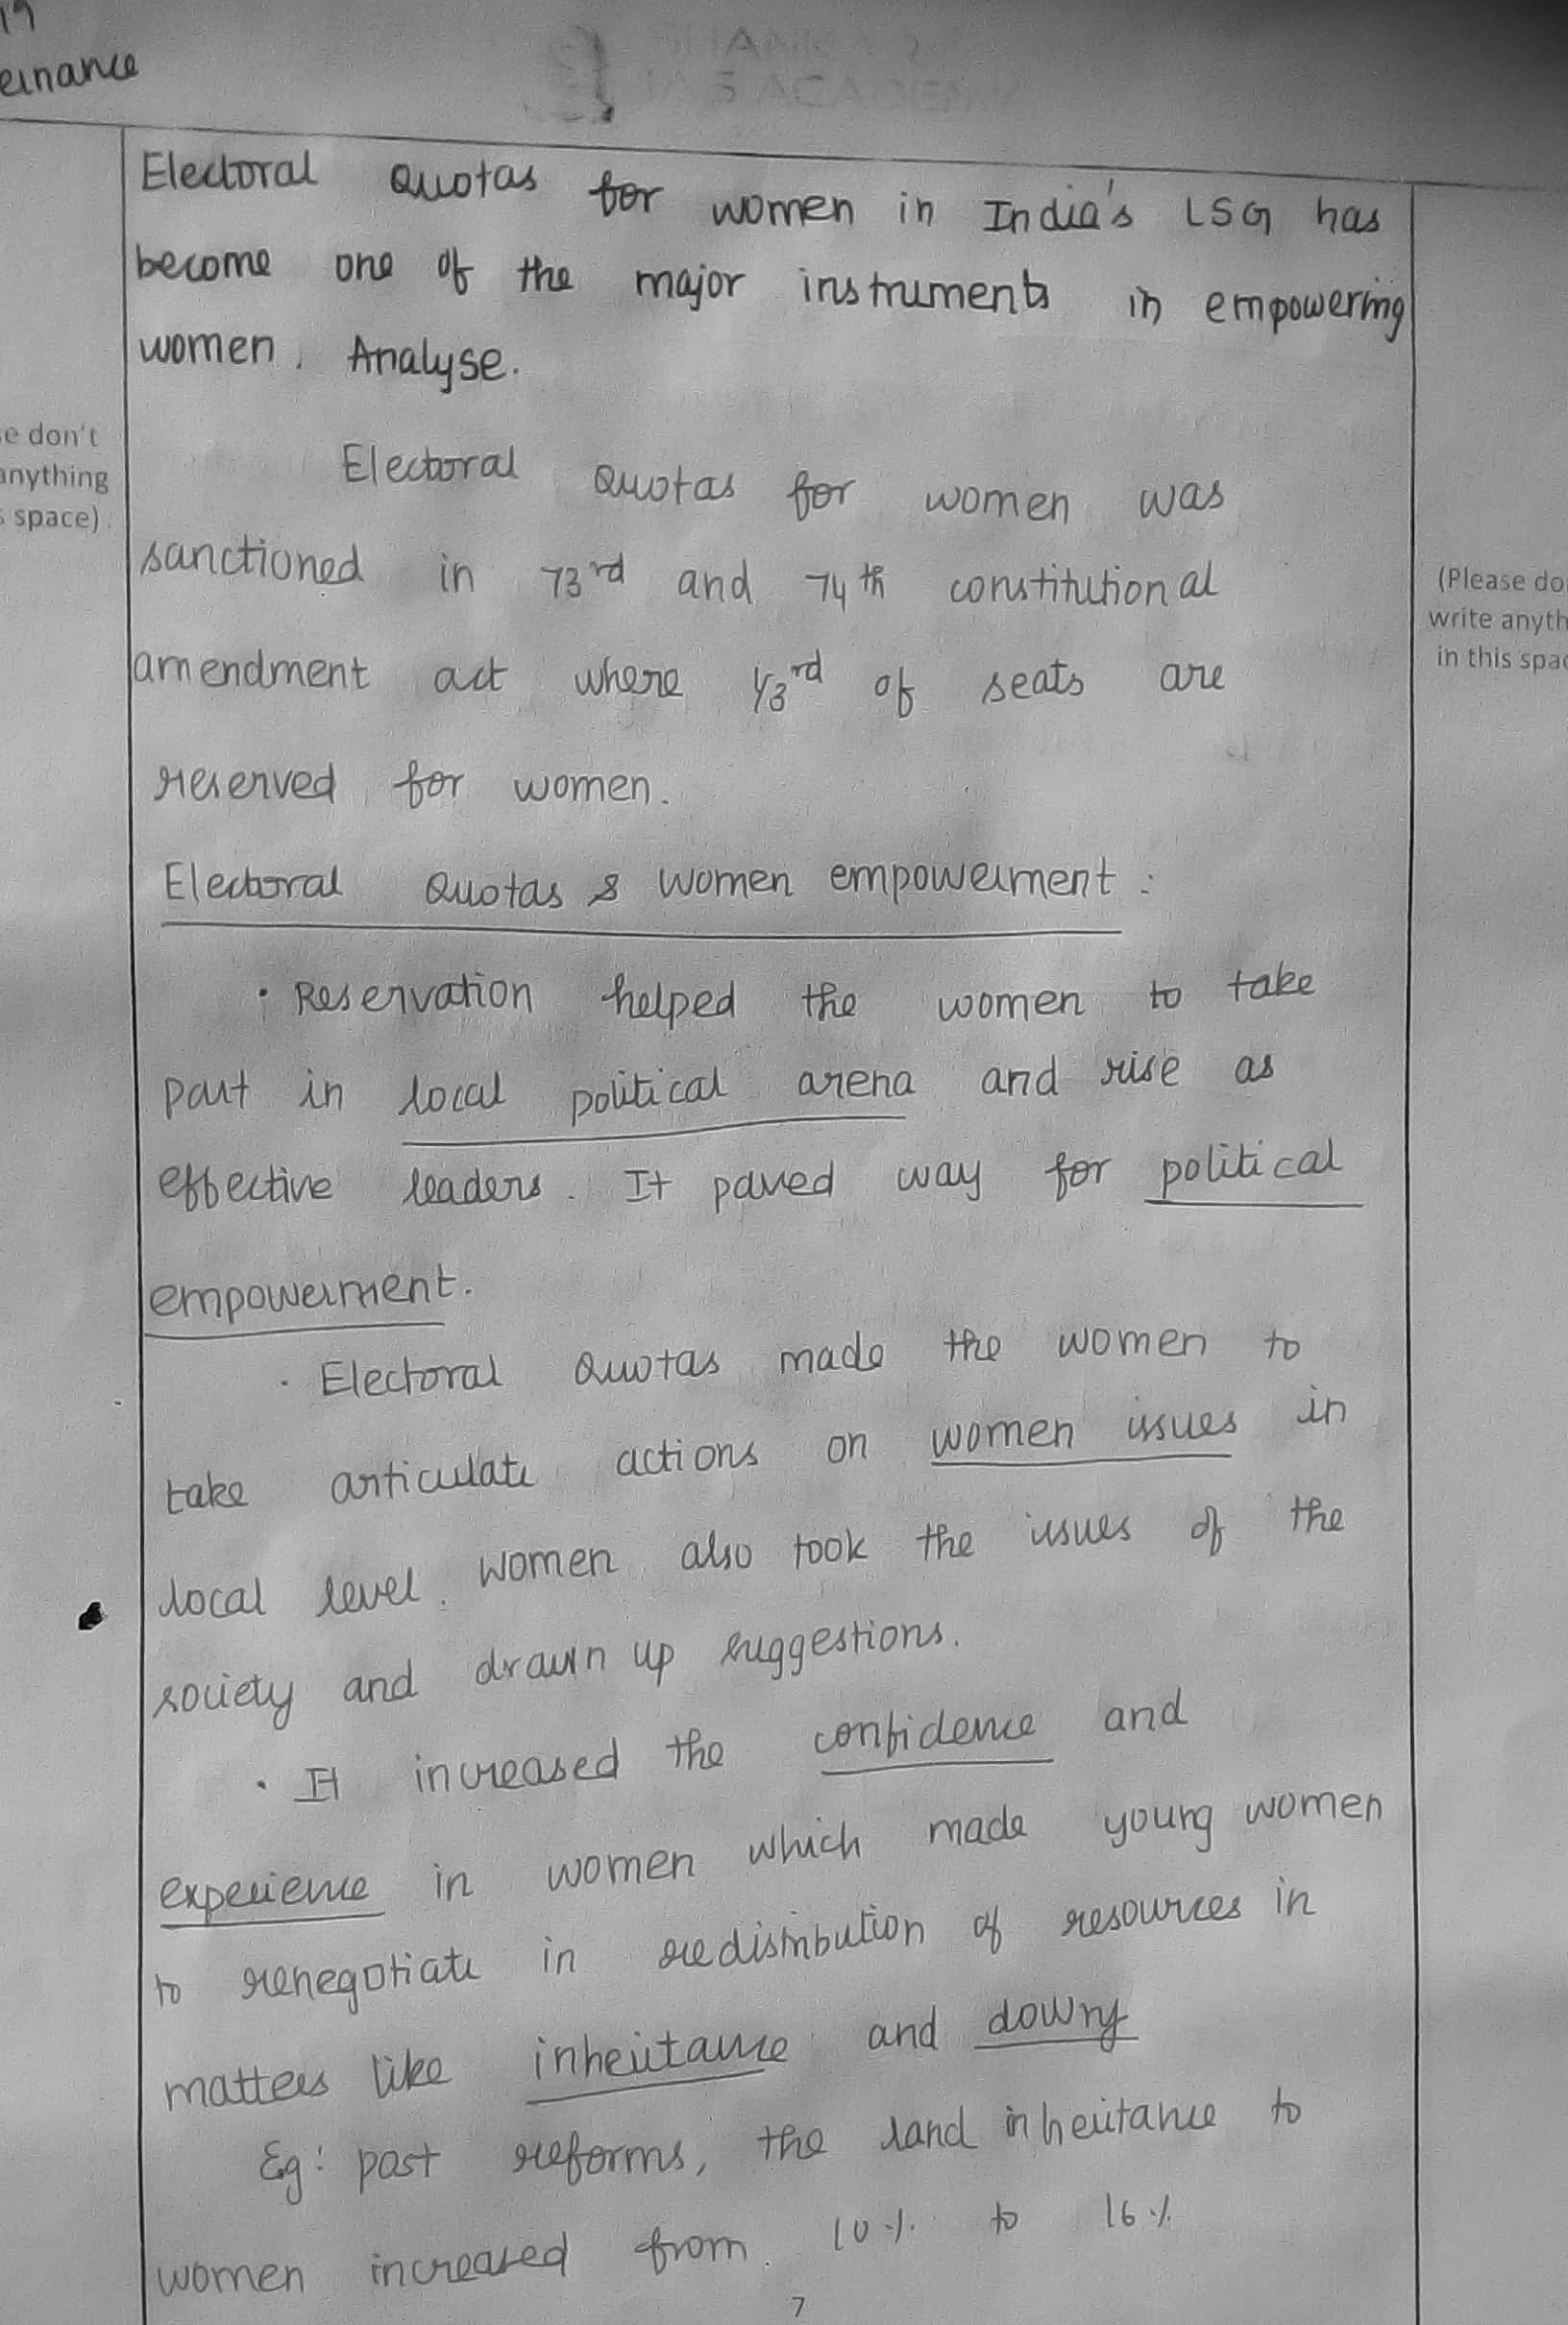 19
ernance
Electoral Quotas for women in India's LSG has
become one of the major instruments in empowering
women. Analyse.
se don't
anything
s space)
Electoral Quotas for women was
sanctioned in 73rd and 74th constitutional
(Please do
write anyth
in this spac
amendment act where 1/3rd of seats are
reserved for women.
Electoral Quotas & women empowerment :
· Reservation helped the women to take
part in local political arena and rise as
effective leaders. It paved way for political
empowerment.
· Electoral Quotas made the women to
take articulate actions on women issues in
local level. women also took the issues of the
society and drawn up suggestions.
· It increased the confidence and
experience in women which made young women
to renegotiate in redistribution of resources in
matters like inheritance and dowry
Eg: post reforms, the land inheritance to
women increased from 10% to 16%
7